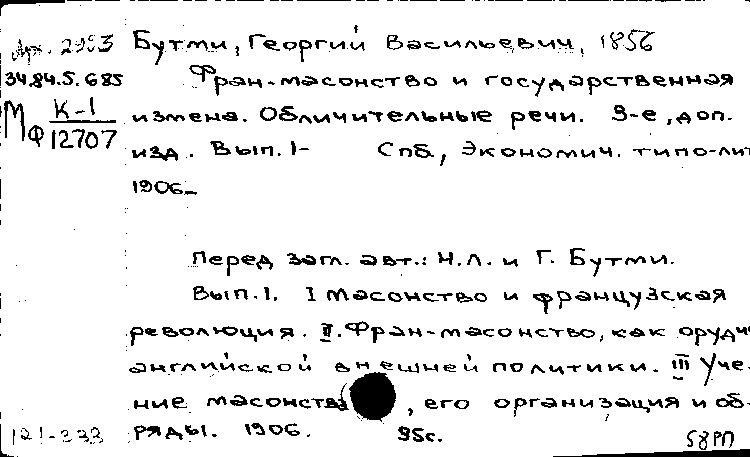 Арх. 2993 Бутми, Георгий Васильевич, 1856
34.84.5.685 Фран-масонство и государственная
М К-1 измена. Обличительные речи. 3-е, доп.
Ф 12707 изд. Вып. 1- Спб, Экономич. типо-лит
1906-
Перед загл. авт.: Н.Л. и Г. Бутми.
Вып. 1. I Масонство и французская
революция. II. Фран-масонство, как оруди
английской внешней политики. III Уче-
ние масонства, его организация и об-
121-333 ряды. 1906. 95с.
58РП